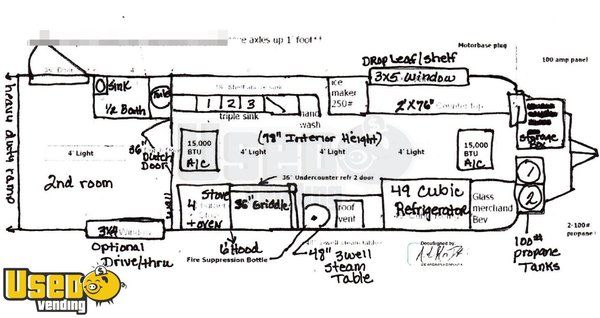 axles up 1' foot**
Motorbase plug
100 amp panel
DROP Leaf/shelf
3x5 WINDOW
Sink
1/2 Bath
1 2 3
triple sink
hand wash
ice maker 250#
2'X76"
Counter top
Storage Box
heavy duty ramp
36" Dutch Door
15,000 BTU A/C
(78" Interior Height)
15,000 BTU A/C
4' Light
4' Light
4' Light
4' Light
2nd room
wall
36" Undercounter refr 2 door
4
Stove
+ OVEN
36" Griddle
roof vent
49 Cubic Refrigerator
Glass merchand Bev
1
2
2-100#
propane
Optional Drive/thru
6' Hood
Fire Suppression Bottle
48" 3well Steam Table
well steam table
DocuSigned by
100# propane Tanks
USED vending